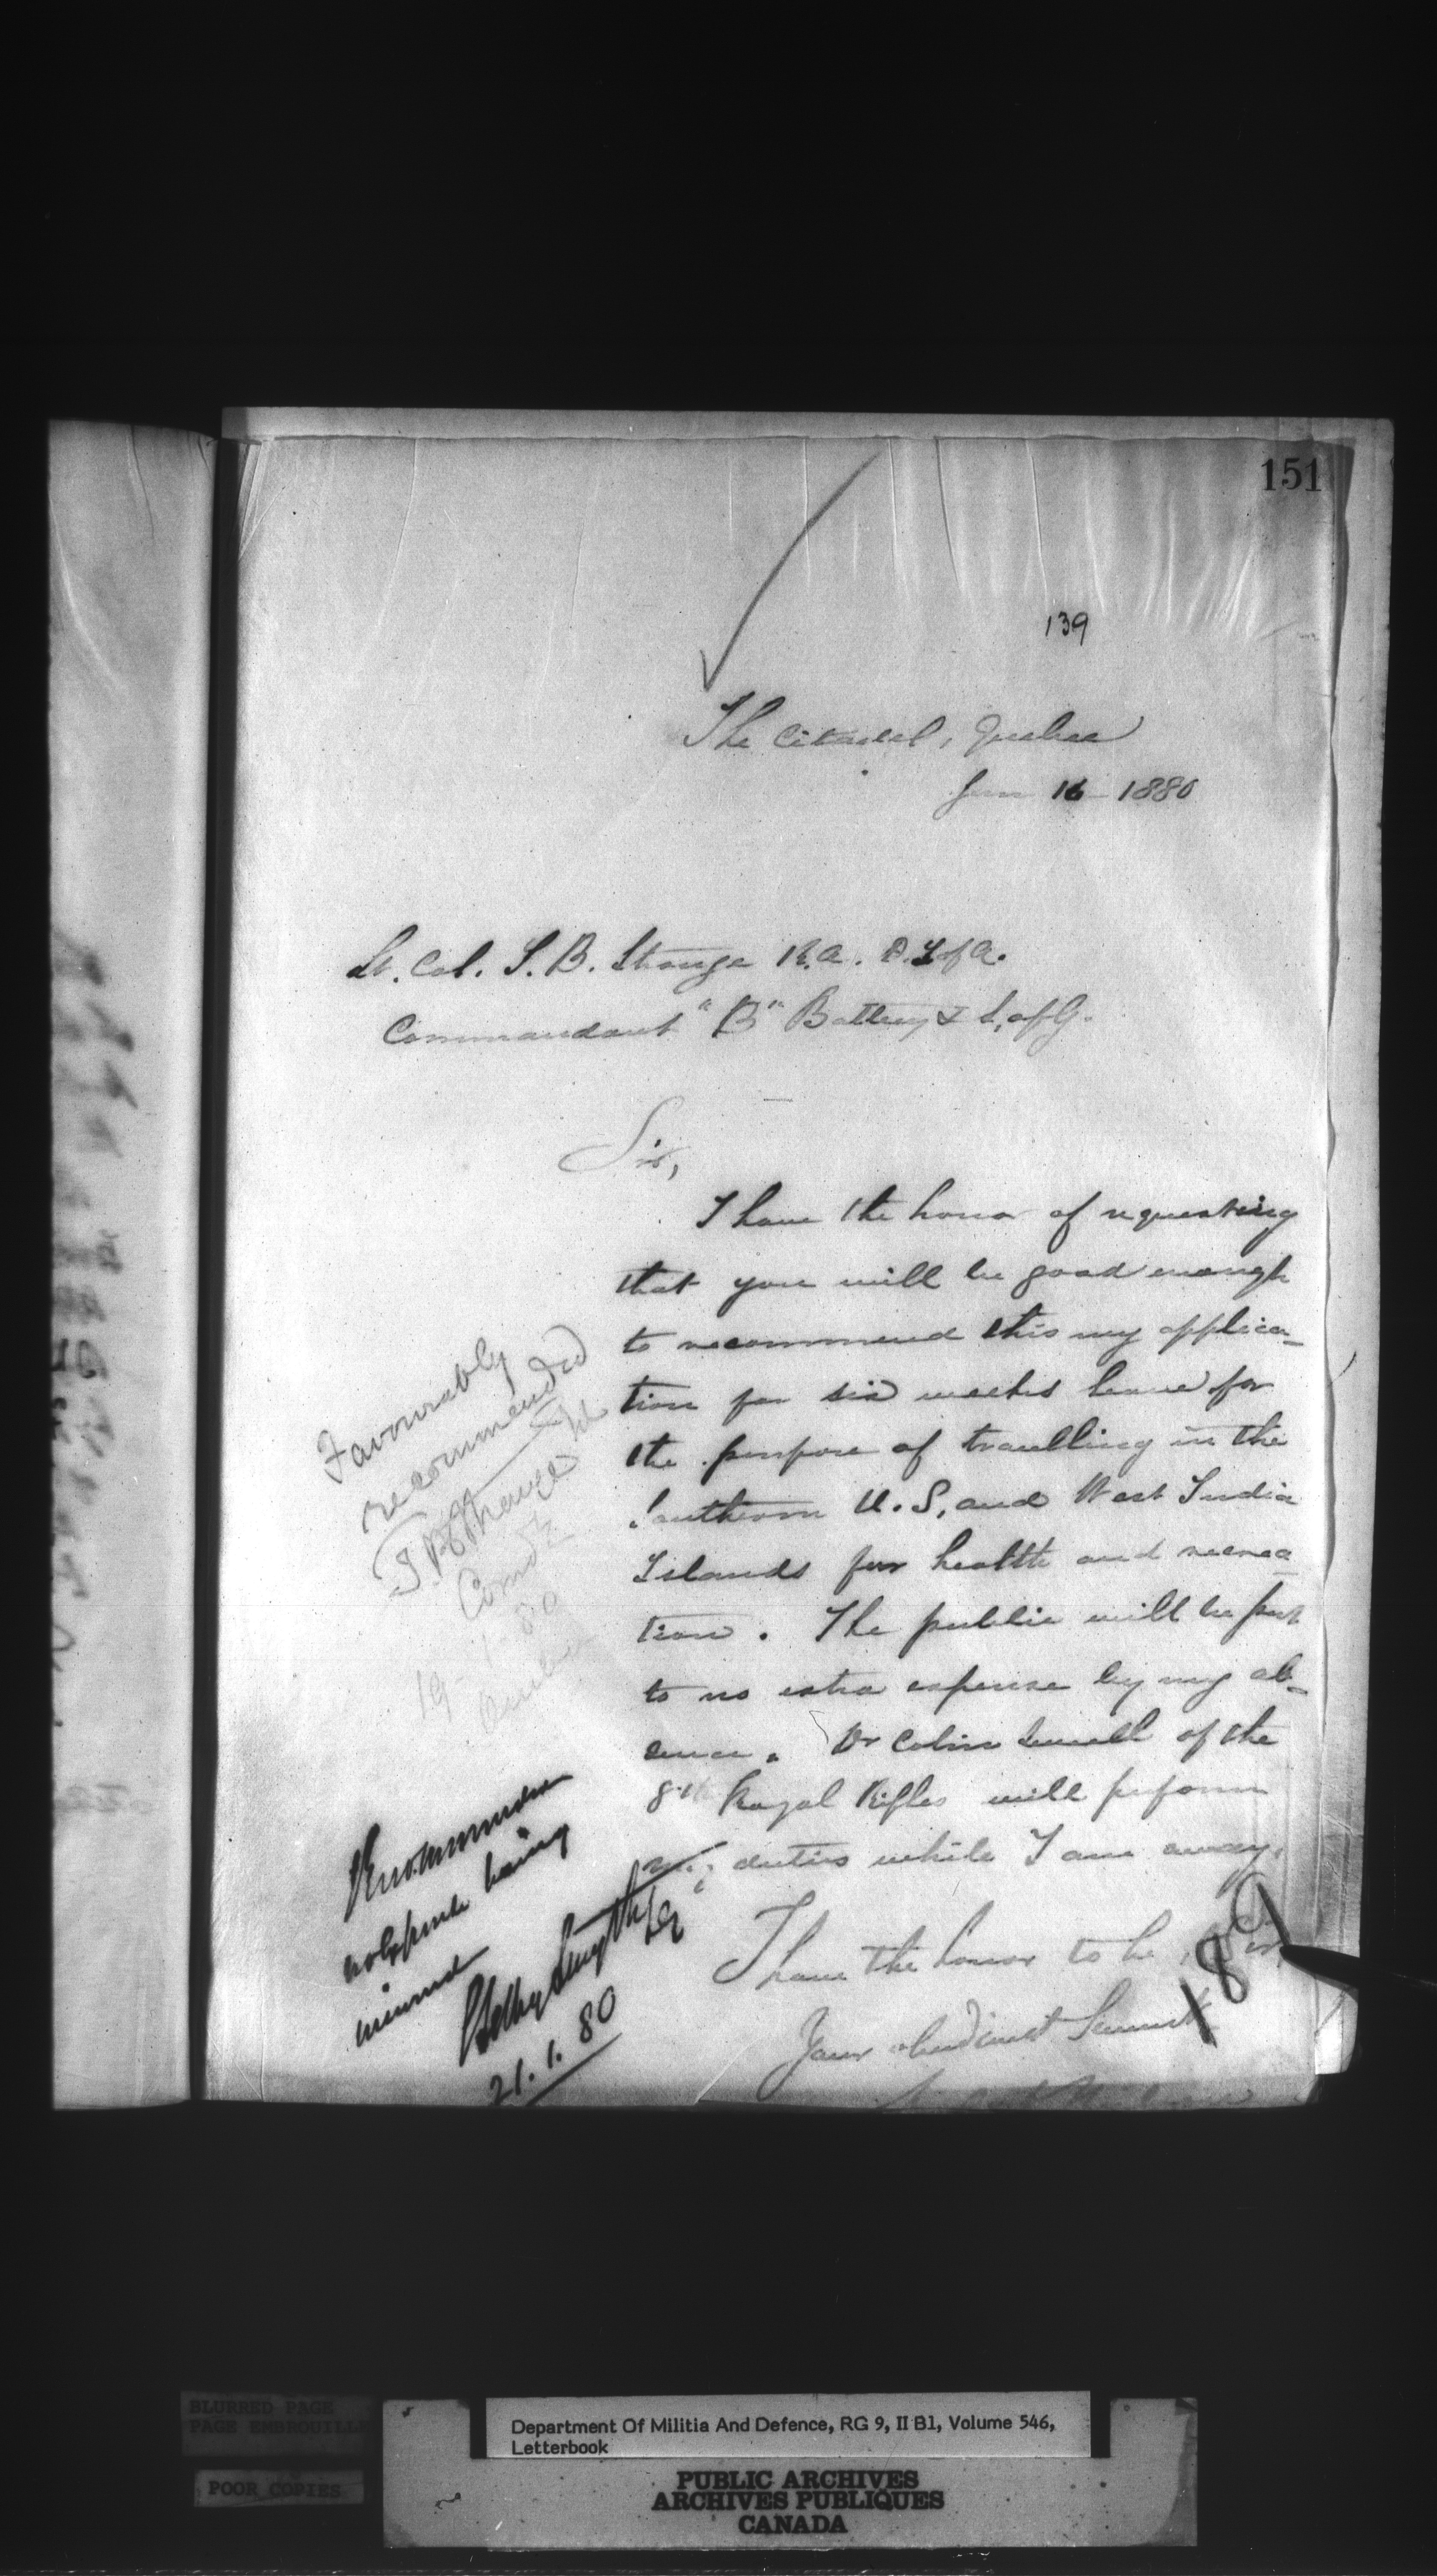 151
139
The Citadel, Quebec
Jan 16 1880
Lt. Col. T. B. Strange R.A. D.I of A.
Commandant "B" Battery & S. of G.
Sir,
I have the honor of requesting
that you will be good enough
to recommend this my applica-
tion for six weeks leave for
the purpose of travelling in the
Southern U.S. and West India
Islands for health and recrea-
tion. The public will be put
to no extra expense by my ab-
sence. Dr Colin Sewell of the
8th Royal Rifles will perform
my duties while I am away.
I have the honor to be, Sir
Your obedient Servant
Favourably
recommended
T B Strange
Comdt
19-1-80
Quebec
Recommended
no expense being
incurred
E Selby Smyth
21.1.80
189
BLURRED PAGE
PAGE EMBROUILL
POOR COPIES
Department Of Militia And Defence, RG 9, II B1, Volume 546,
Letterbook
PUBLIC ARCHIVES
ARCHIVES PUBLIQUES
CANADA